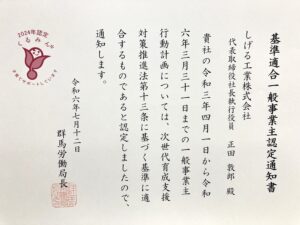 基準適合一般事業主認定通知書
しげる工業株式会社
代表取締役社長執行役員 正田 敦郎 殿
貴社の令和三年四月一日から令和
六年三月三十一日までの一般事業主
行動計画については、次世代育成支援
対策推進法第十三条に基づく基準に適
合するものであると認定しましたので、
通知します。
令和六年七月十二日
群馬労働局長
2024年認定
くるみん
子育てサポートしています